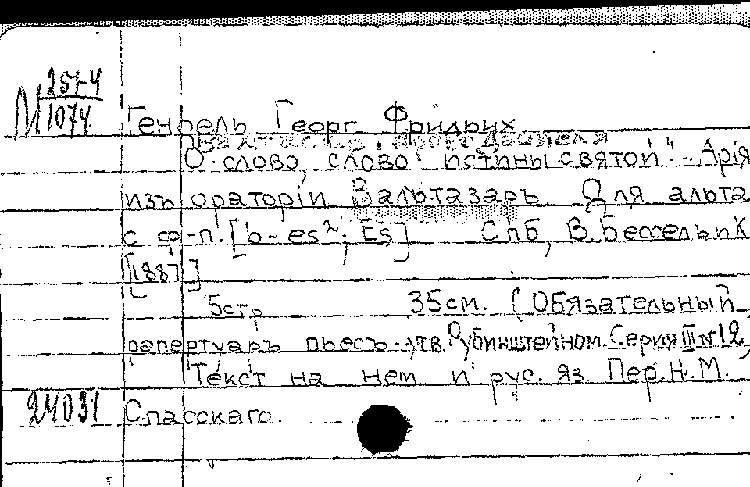 М 257-4
1074
Гендель Георг Фридрих
"О слово, слово истины святой". Арiя
изъ ораторiи Вальтазаръ. Для альта
с ф-п. [b-es²; Es] Спб, В. Бессель и К
[1887]
5стр 35см. (Обязательный
репертуаръ пьесъ, утв. Рубинштейном. Серия III №12,
Текст на нем и рус. яз. Пер. Н. М.
24031 Спасскаго.